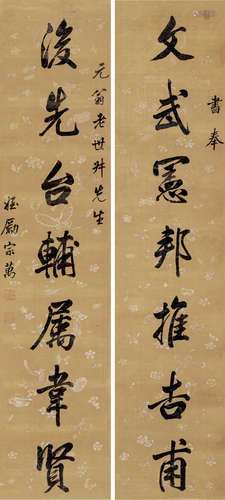 書奉
文武憲邦推吉甫
元翁老世叔先生
後先台輔屬韋賢
姪勵宗萬